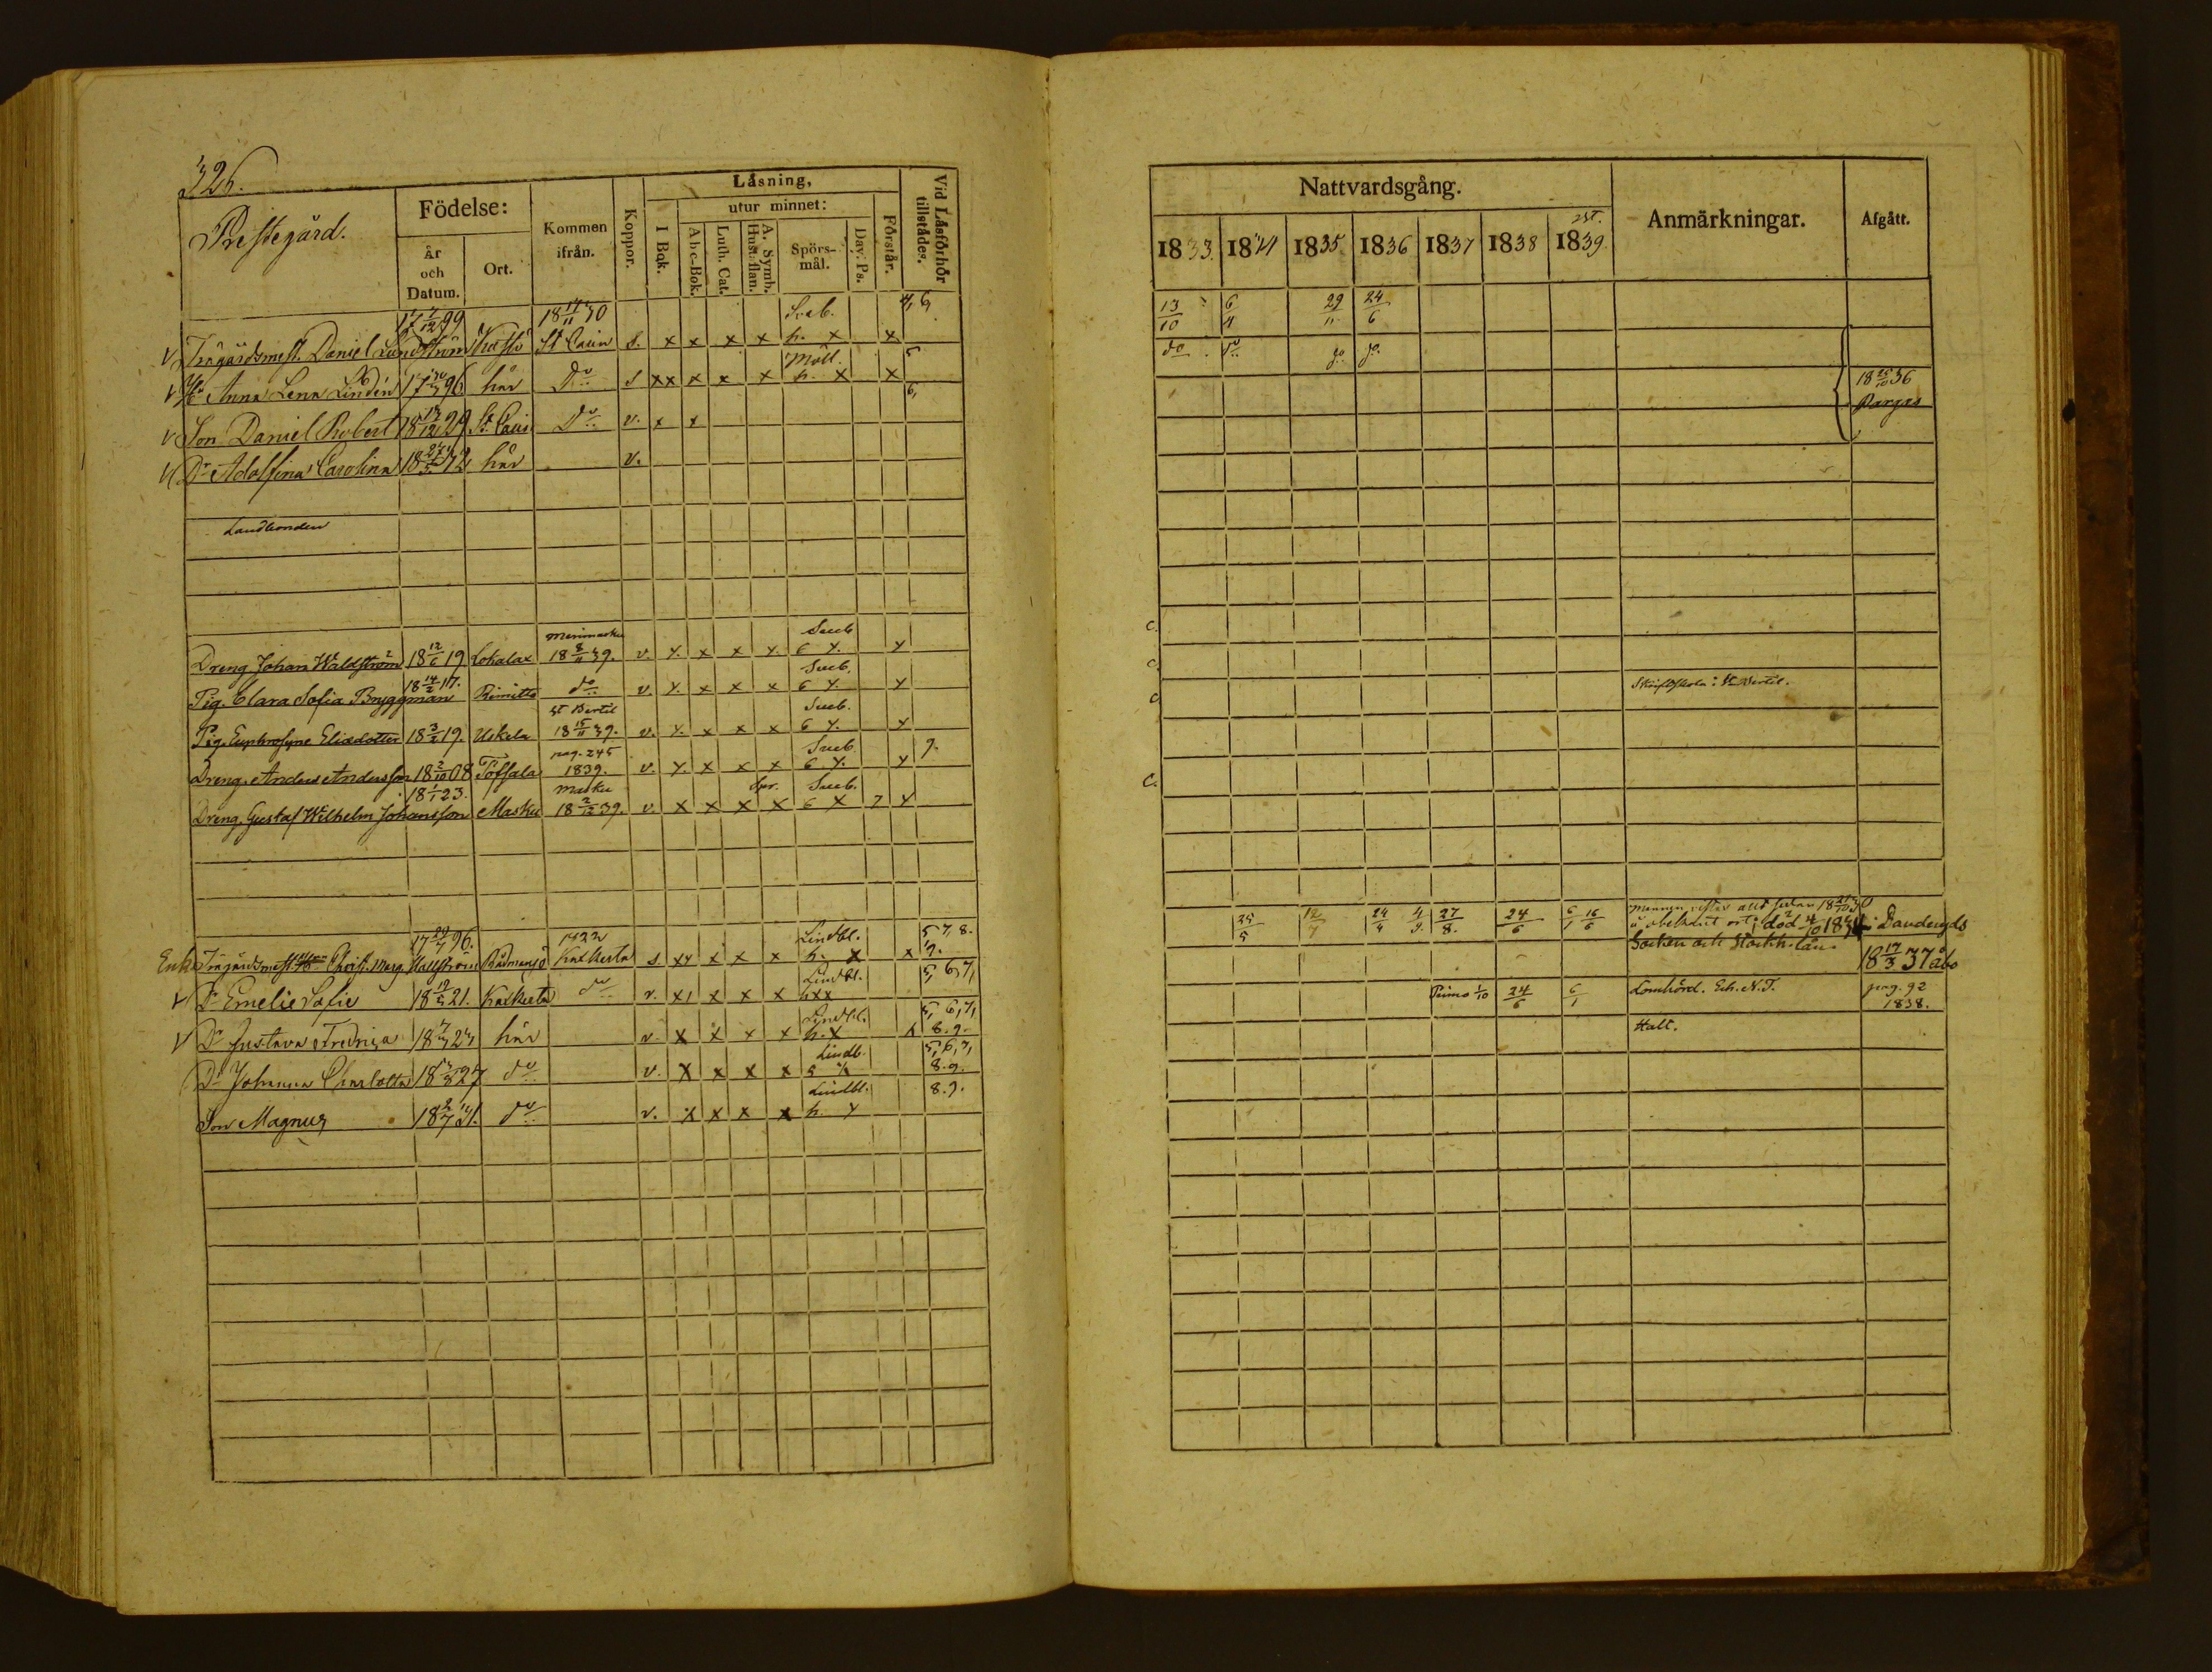 326.
Prestegård.
Födelse:
År och Datum.
Ort.
Kommen ifrån.
Koppor.
Läsning,
I Bok.
utur minnet:
Abc-Bok.
Luth. Cat.
A. Symb. Hust. flan.
Spörs-mål.
Dav. Ps.
Förstår.
Vid Läsförhör tillstädes.
Trägårdsmest. Daniel Lundström 17 7/12 99 Kustö 18 14/11 30 St Carin s. x x x x h. x x 4, 6,
Hu Anna Lena Lindén 17 96 här Do s xx x x x Moll. h. x x 5
Son Daniel Robert 18 /12 29 St. Carin Do v. x x 6,
Dr Adolfina Carolina 18 32 här v.
Landbonden
Dreng Johan Waldström 18 12/6 19 Lokalax Merimasku 18 8/11 39. v. x. x x x. Sveb 6 x. x
Pig. Clara Sofia Bryggman 18 14/2 17. Rimitto do v. x. x x x Sveb. 6 x. x
Pig. Euphrosyne Eliædotter 18 3/2 19. Uskela St Bertil 18 15/11 39. v. x. x x x Sveb. 6 x. x
Dreng. Anders Andersson 18 2/10 08 Töfsala pag. 245 1839. v. x. x x x Sveb 6 x. x 9.
Dreng. Gustaf Wilhelm Johansson 18 1/1 23. Masku Masku 18 2/12 39. v. x x x x Sveb. 6 x 7 x
Enk. Trägårdsmest. Christ. Marg. Hallström 17 29/7 96. Rådmansö 1822 Kalkesta s. xx x x x Lindbl. h. x x 5 7, 8. 9.
Dr Emelie Sofie 18 21. Kalkesta do v. x x x x Lindbl. h x x 5, 6, 7,
Dr Gustava Fredrica 18 24 här v x x x x Lindbl. h. x 5, 6, 7, 8. 9.
Dr Johanna Charlotta 18 27 do v. x x x x Lindb. 5 x 5, 6, 7, 8. 9.
Son Magnus 18 2/7 31. do v. x x x x Lindbl. h. x 8. 9.
Nattvardsgång.
Anmärkningar.
Afgått.
1833. 1834 1835 1836 1837 1838 1839.
13/10 6/4 29/11 24/6
do do do do
18 25/10 36
Pargas
c.
c.
Skriftskola i St. Bertil.
c
c.
25/5 12/7 24/4 4/9 27/8. 24/6 6/1 16/6
å obekant ort; död 4/10 1834 i Danderyds
Socken och Stockh. län.
18 17/3 37 Åbo
Primo 1/10 24/6 6/1 Lomhörd. Erh. N. T. pag. 92 1838.
Halt.